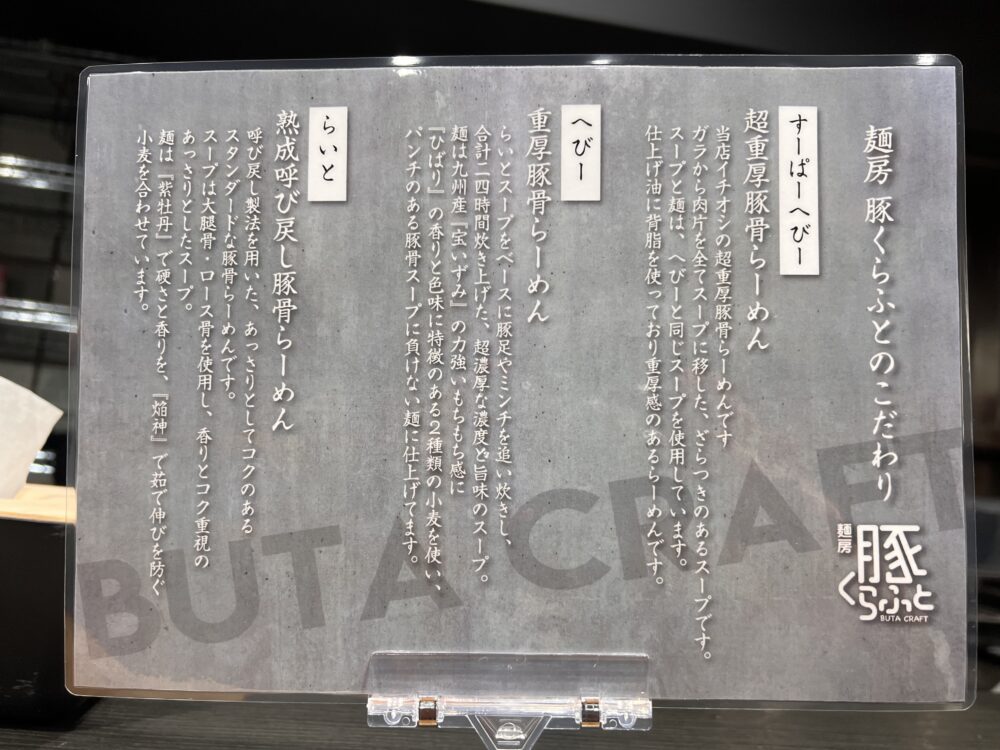 麺房 豚くらふとのこだわり
すーぱーへびー
超重厚豚骨らーめん
当店イチオシの超重厚豚骨らーめんです
ガラから肉片を全てスープに移した、ざらつきのあるスープです。
スープと麺は、へびーと同じスープを使用しています。
仕上げ油に背脂を使っており重厚感のあるらーめんです。
へびー
重厚豚骨らーめん
らいとスープをベースに豚足やミンチを追い炊きし、
合計二四時間炊き上げた、超濃厚な濃度と旨味のスープ。
麺は九州産『宝いずみ』の力強いもちもち感に
『ひばり』の香りと色味に特徴のある2種類の小麦を使い、
パンチのある豚骨スープに負けない麺に仕上げてます。
らいと
熟成呼び戻し豚骨らーめん
呼び戻し製法を用いた、あっさりとしてコクのある
スタンダードな豚骨らーめんです。
スープは大腿骨・ロース骨を使用し、香りとコク重視の
あっさりとしたスープ。
麺は『紫牡丹』で硬さと香りを、『焔神』で茹で伸びを防ぐ
小麦を合わせています。
麺房
豚
くらふと
BUTA CRAFT
BUTA CRAFT